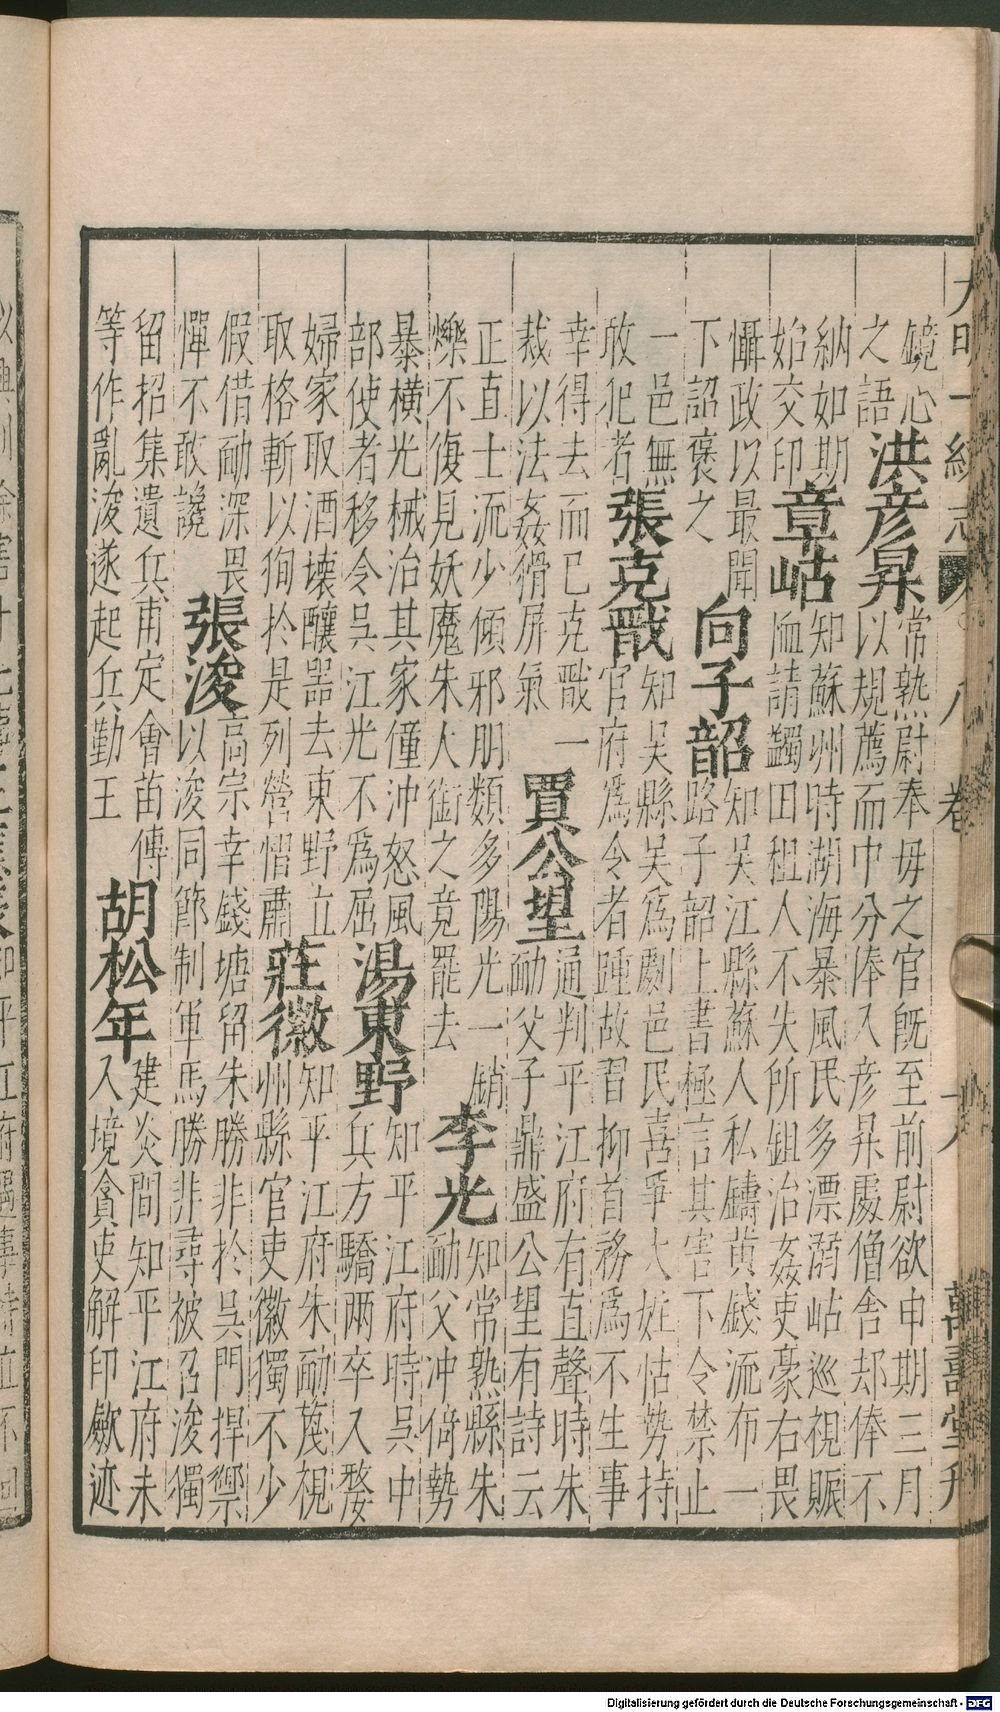 大明一統志 八卷 十八 萬壽堂刋
鏡心
之語
洪彦昇
常熟尉奉毋之官旣至前尉欲申期三月
以規薦而中分俸入彦昇處僧舍却俸不
納如期
始交印
章岵
知蘇州時湖海暴風民多漂溺岵巡視賑
恤請蠲田租人不失所鉏治姦吏豪右畏
懾政以最聞
下詔褒之
向子韶
知吳江縣蘇人私鑄黃錢流布一
路子韶上書極言其害下令禁止
一邑無
敢犯者
張克戩
知吳縣吳爲劇邑民喜爭大姓怙勢持
官府爲令者踵故習抑首務爲不生事
幸得去而已克戩一
裁以法姦猾屏氣
賈公望
通判平江府有直聲時朱
勔父子鼎盛公望有詩云
正直士流少傾邪朋類多陽光一銷
爍不復見妖魔朱人銜之竟罷去
李光
知常熟縣朱
勔父冲倚勢
暴橫光械治其家僮沖怒風
部使者移令吳江光不爲屈
湯東野
知平江府時吳中
兵方驕兩卒入婺
婦家取酒壊釀噐去東野立
取格斬以徇於是列營慴肅
莊徽
知平江府朱勔蔑視
州縣官吏徽獨不少
假借勔深畏
憚不敢讒
張浚
高宗幸錢塘留朱勝非於吳門捍禦
以浚同節制軍馬勝非尋被召浚獨
留招集遺兵甫定會苗傳
等作亂浚遂起兵勤王
胡松年
建炎間知平江府未
入境貪吏解印歛迹
Digitalisierung gefördert durch die Deutsche Forschungsgemeinschaft - DFG